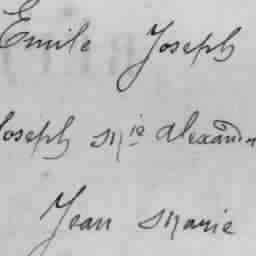 Emile Joseph
Joseph Mie Alexandre
Jean Marie